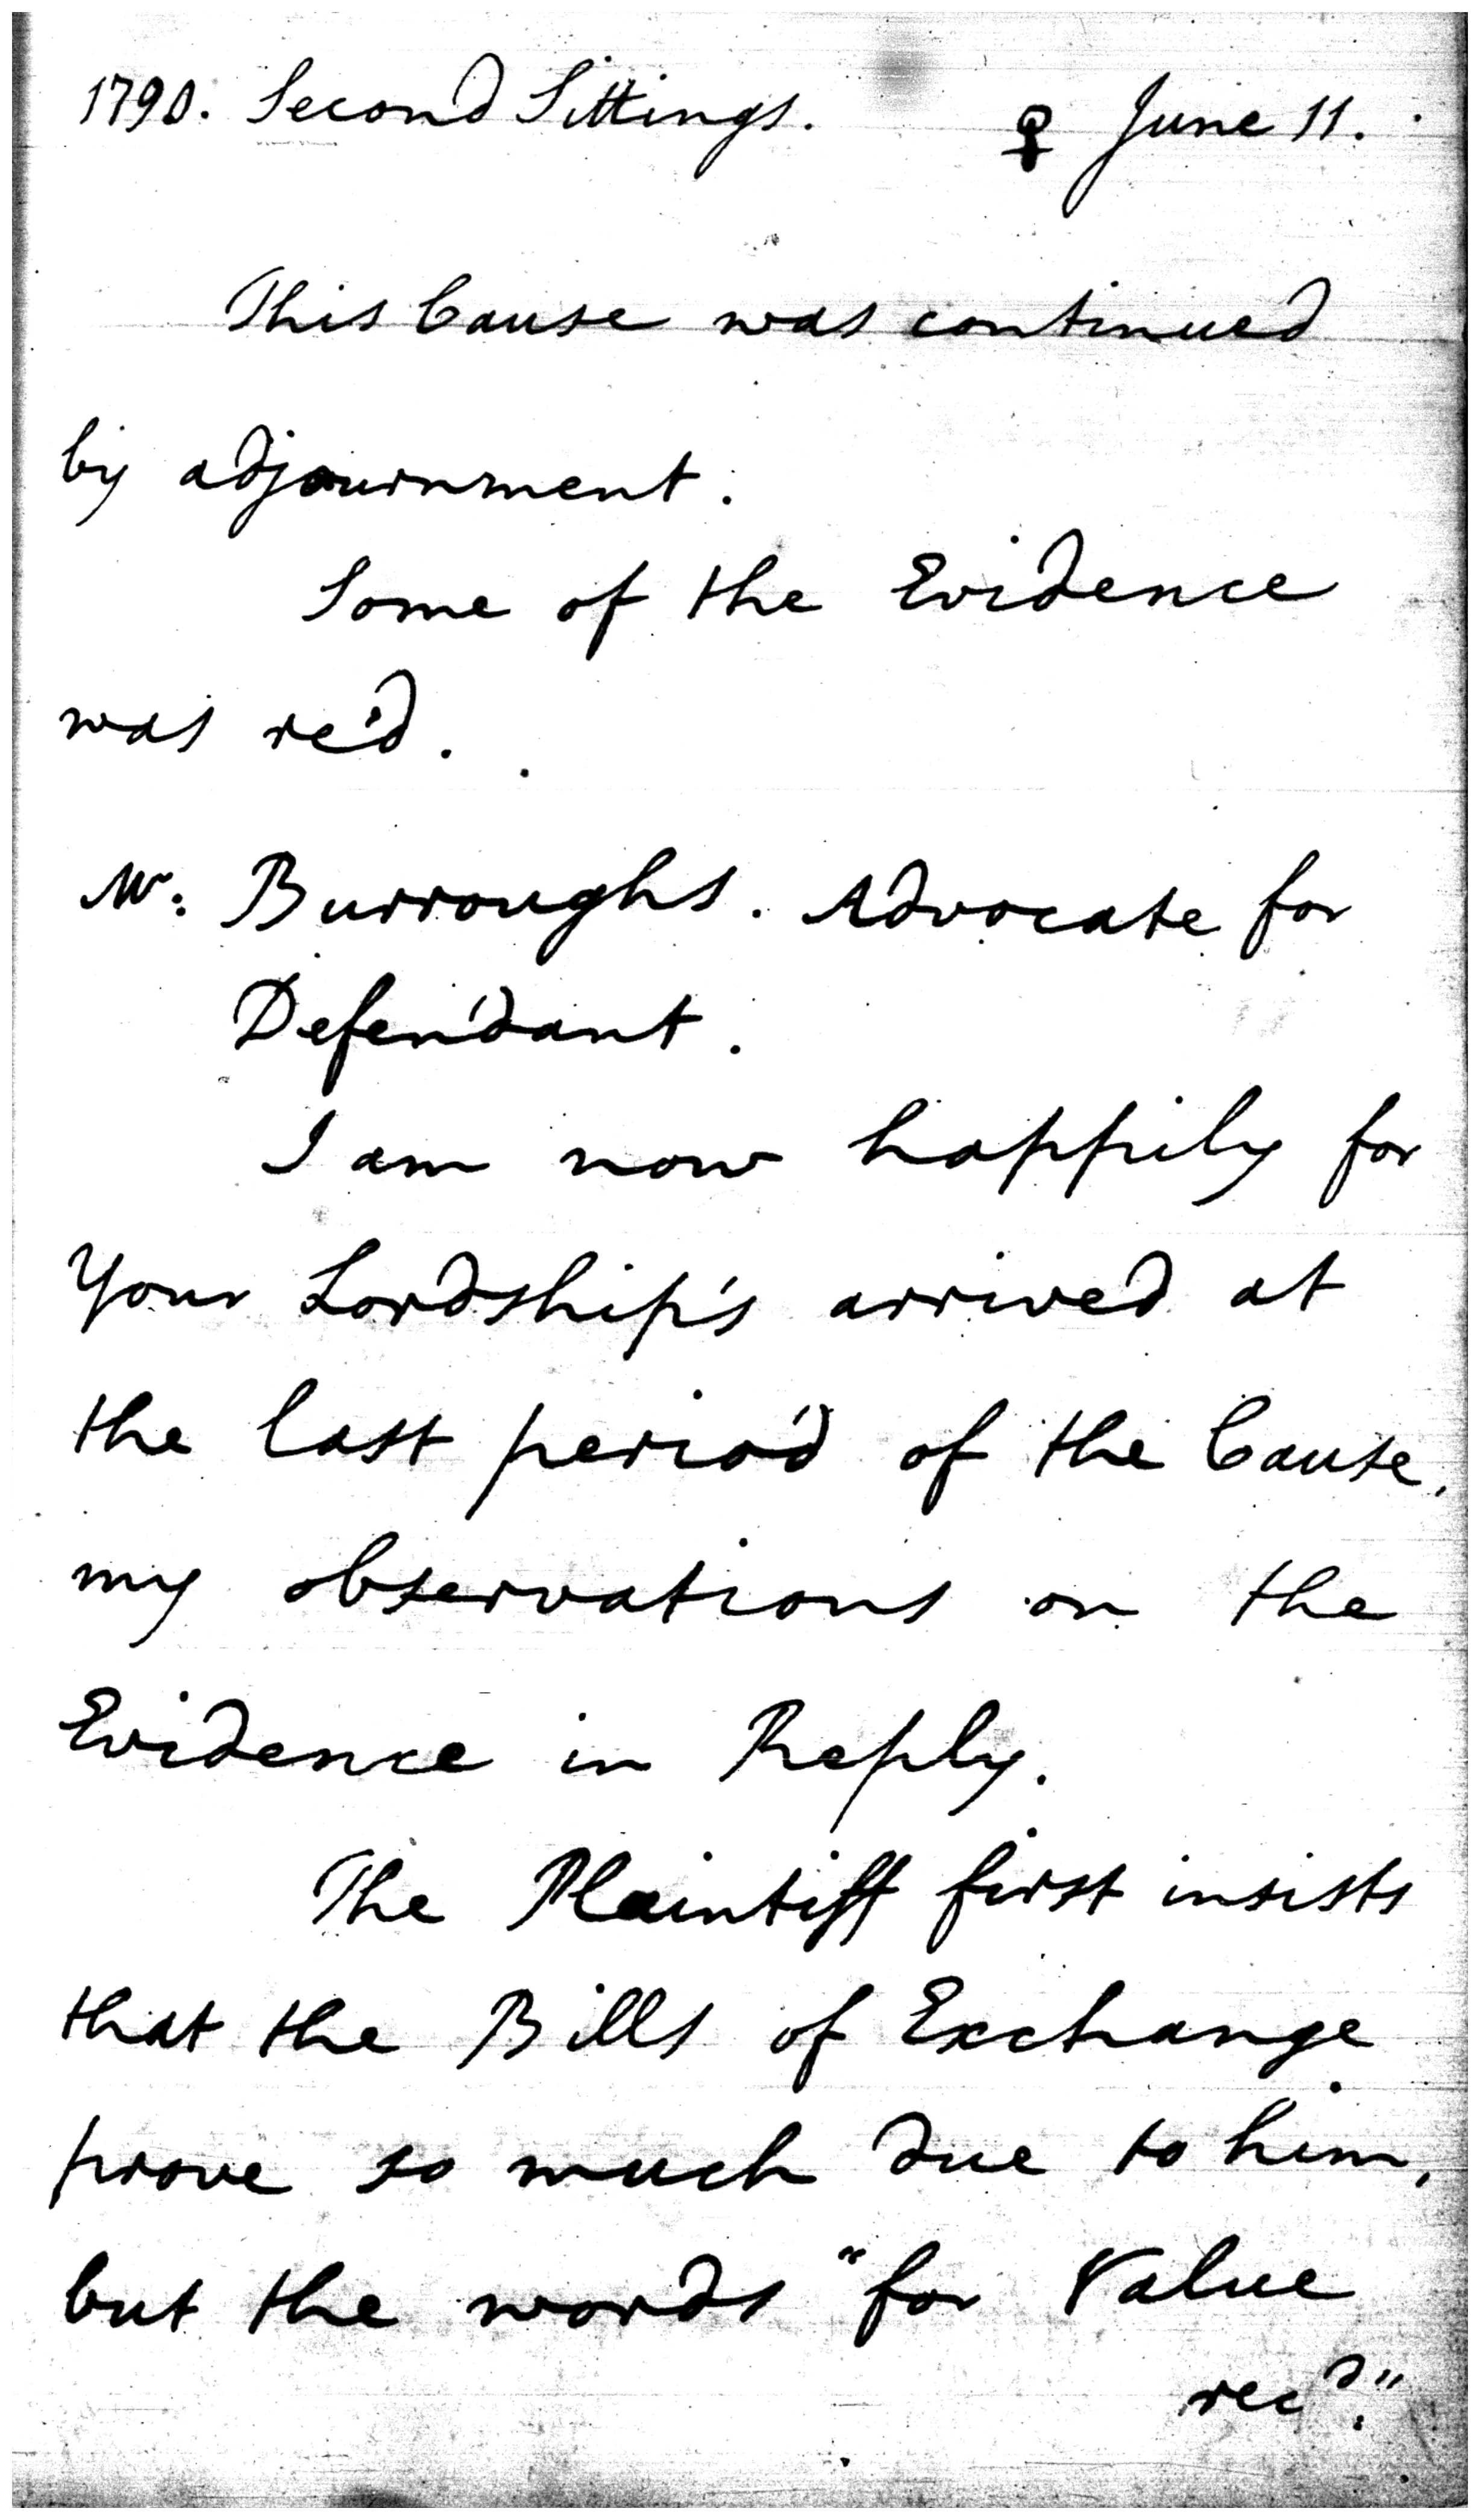 1790. Second Sittings. ♀ June 11.
This Cause was continued
by adjournment.
Some of the Evidence
was re'd.
Mr: Burroughs. Advocate for
Defendant.
I am now happily for
Your Lordship's arrived at
the last period of the Cause,
my observations on the
Evidence in Reply.
The Plaintiff first insists
that the Bills of Exchange
prove so much due to him,
but the words "for Value
recd."